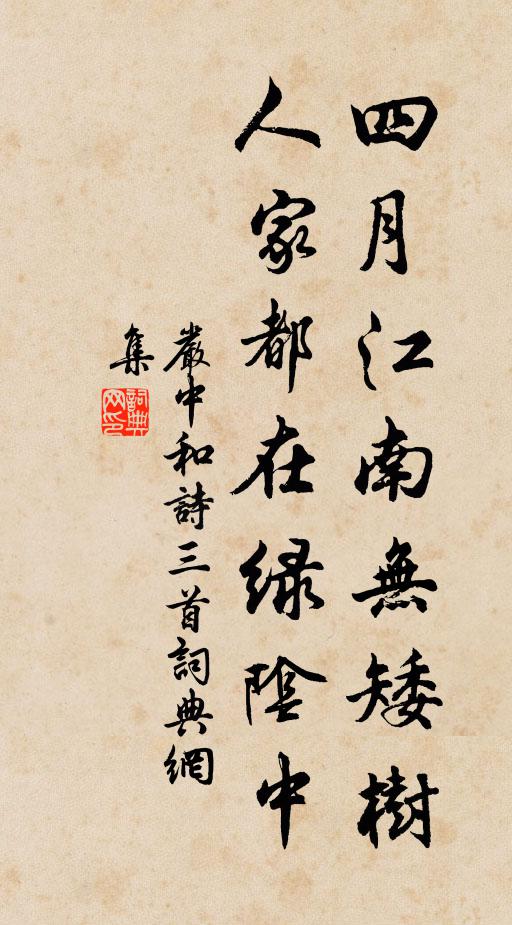 四月江南無矮樹
人家都在緑陰中
嚴中和詩三首詞典網
集
詞典
网印